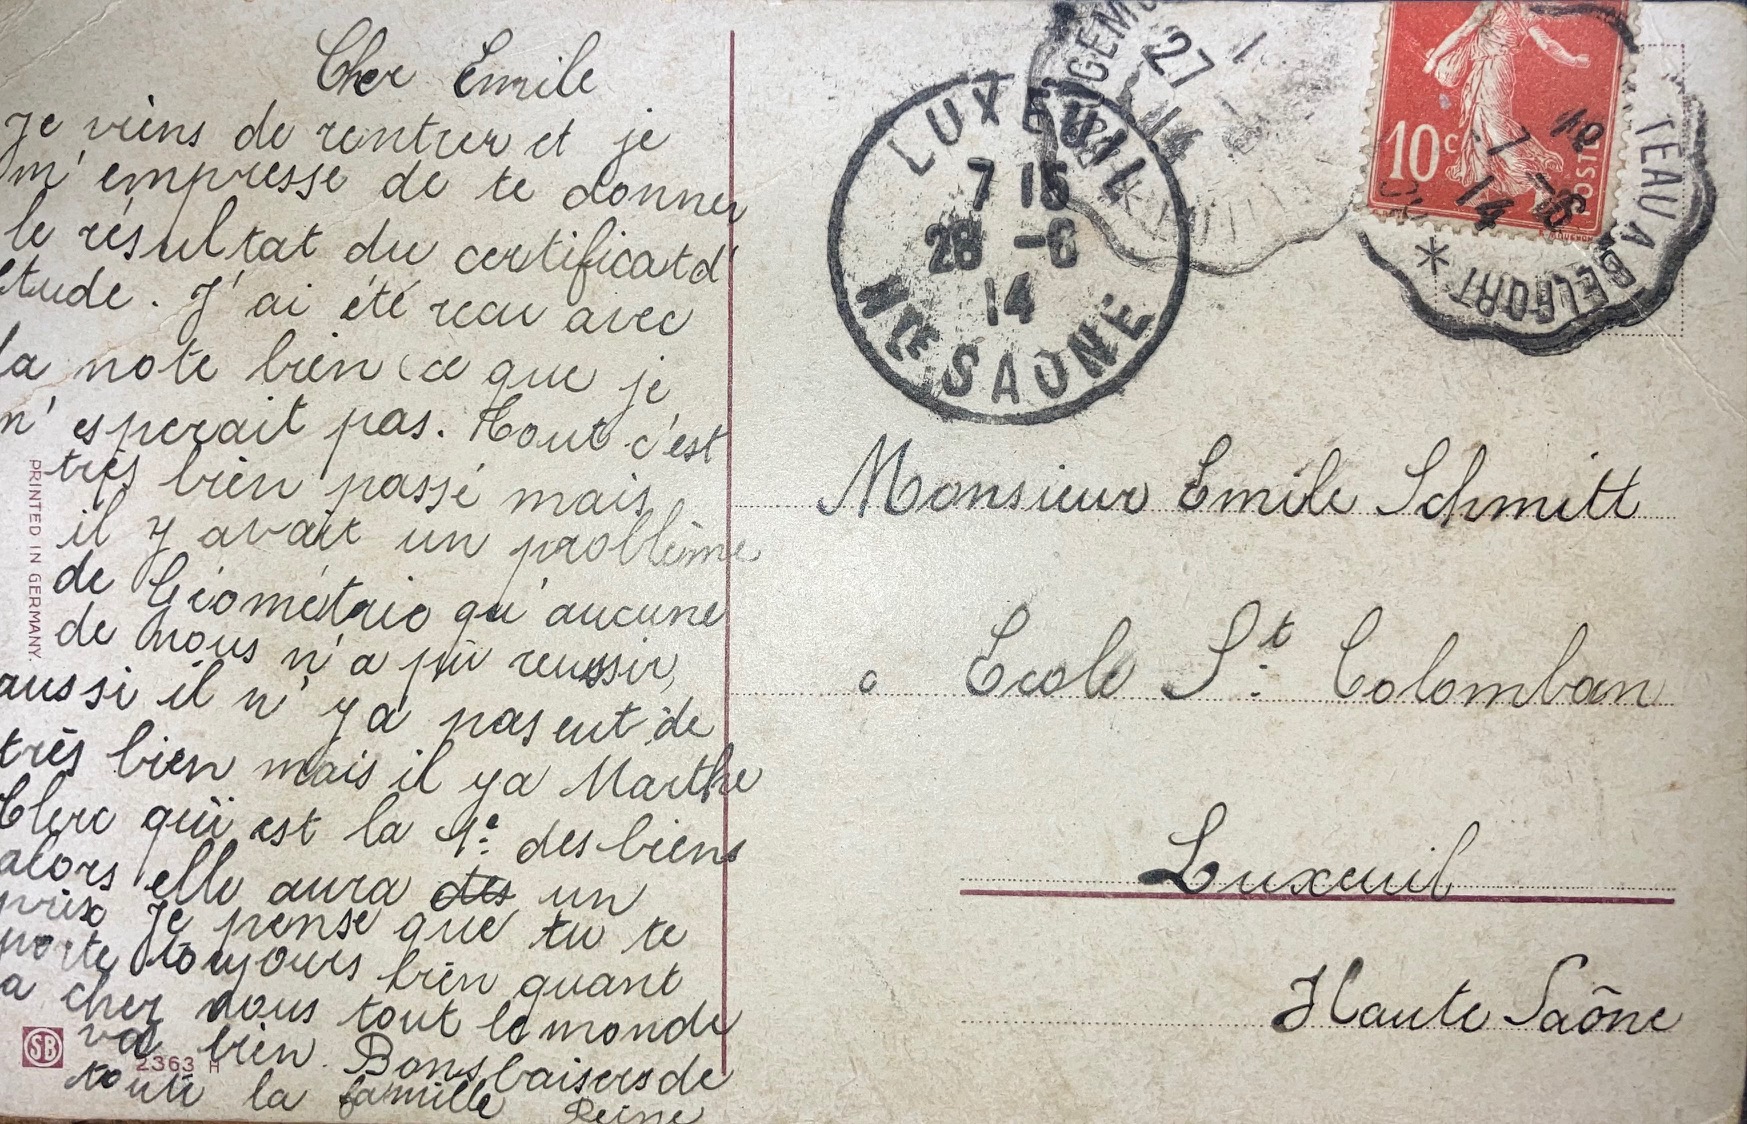 Cher Emile
Je viens de rentrer et je
m'empresse de te donner
le résultat du certificat d'
étude. J'ai été recu avec
la note bien (ce que je
n'esperait pas. Tout c'est
très bien passé mais
il y avait un problème
de Géométrie qu'aucune
de nous n'a pu reussir,
aussi il n'y a pas eut de
très bien mais il y a Marthe
Clerc qui est la 1e des biens
alors elle aura des un
prix Je pense que tu te
porte toujours bien quant
a cher nous tout le monde
va bien. Bons baisers de
toute la famille Reine
PRINTED IN GERMANY.
SB
2363 H
LUXEUIL
7 15
28 -6
14
Hte SAÔNE
27
14
10c
POSTES
TEAU A BELFORT *
14
Monsieur Emile Schmitt
a Ecole St. Colomban
Luxeuil
Haute Saône